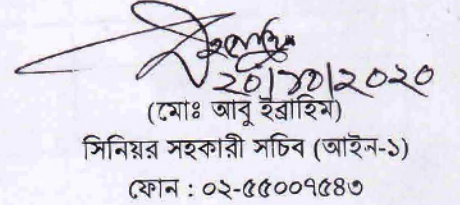 ২০/১০/২০২০
(মোঃ আবু ইব্রাহিম)
সিনিয়র সহকারী সচিব (আইন-১)
ফোন : ০২-৫৫০০৭৫৪৩